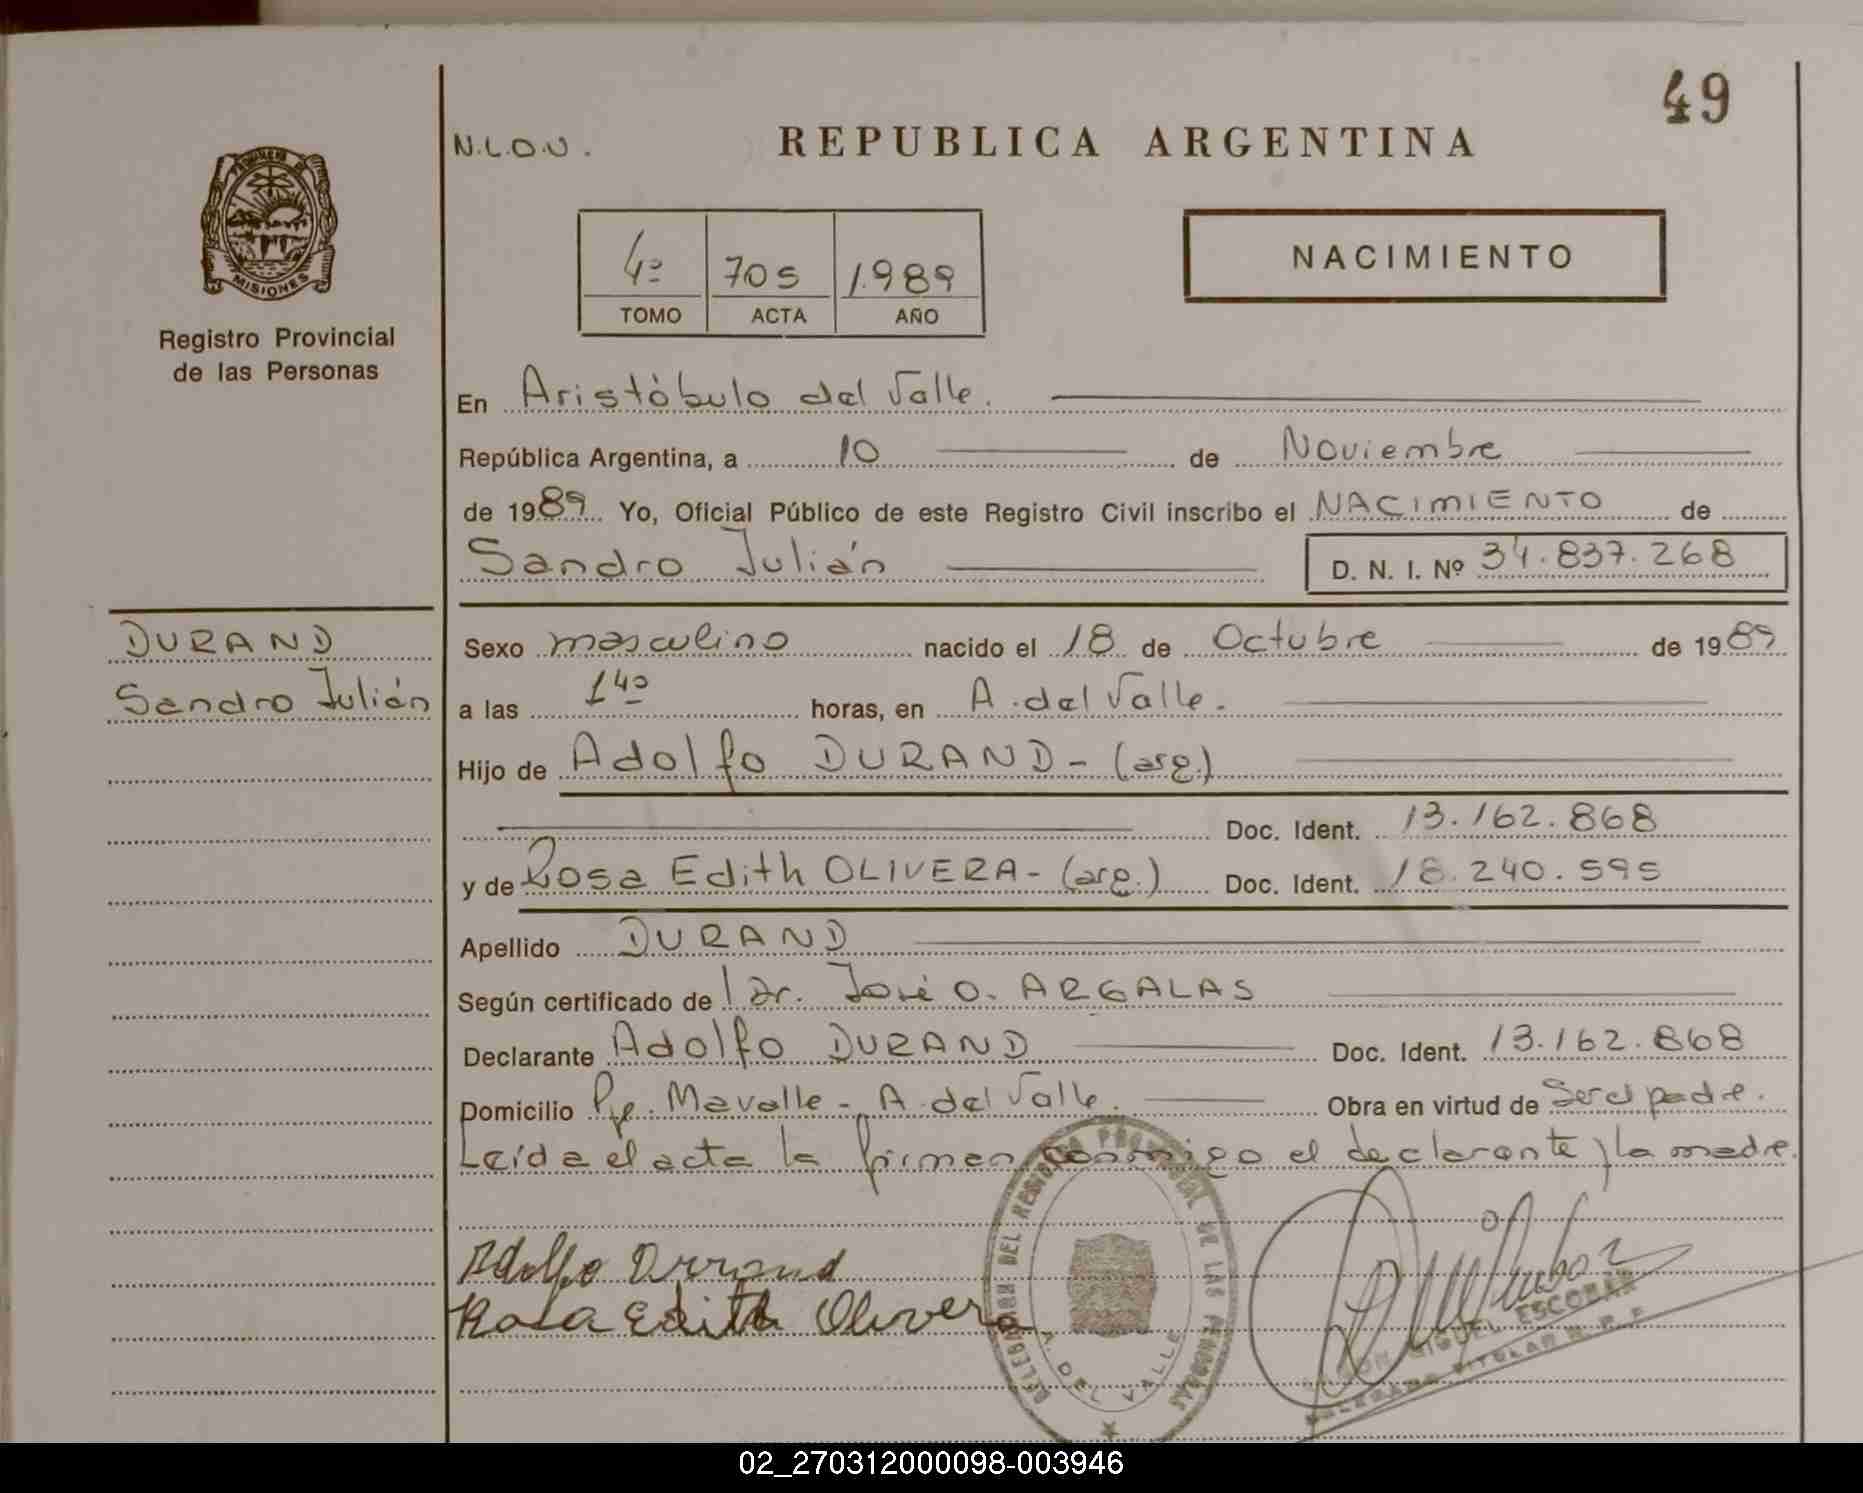 49
N.L.O.V.
REPUBLICA ARGENTINA
MISIONES
Registro Provincial
de las Personas
4º 705 1.989
TOMO ACTA AÑO
NACIMIENTO
En Aristóbulo del Valle.
República Argentina, a 10 de Noviembre
de 1989 Yo, Oficial Público de este Registro Civil inscribo el NACIMIENTO de
Sandro Julián D. N. I. Nº 34.837.268
DURAND
Sandro Julián
Sexo masculino nacido el 18 de Octubre de 1989
a las 140 horas, en A. del Valle.
Hijo de Adolfo DURAND - (arg.)
Doc. Ident. 13.162.868
y de Rosa Edith OLIVERA - (arg.) Doc. Ident. 18.240.595
Apellido DURAND
Según certificado de Dr. José O. ARGALAS
Declarante Adolfo DURAND Doc. Ident. 13.162.868
Domicilio Pje. Mavalle - A. del Valle. Obra en virtud de Ser el padre.
Leída el acta la firman conmigo el declarante y la madre.
Adolfo Durrand
Rosa Edith Olivera
DELEGACION DEL REGISTRO PROVINCIAL DE LAS PERSONAS
A. DEL VALLE
MIGUEL ESCOBAR
TITULAR R. P. P.
02_270312000098-003946